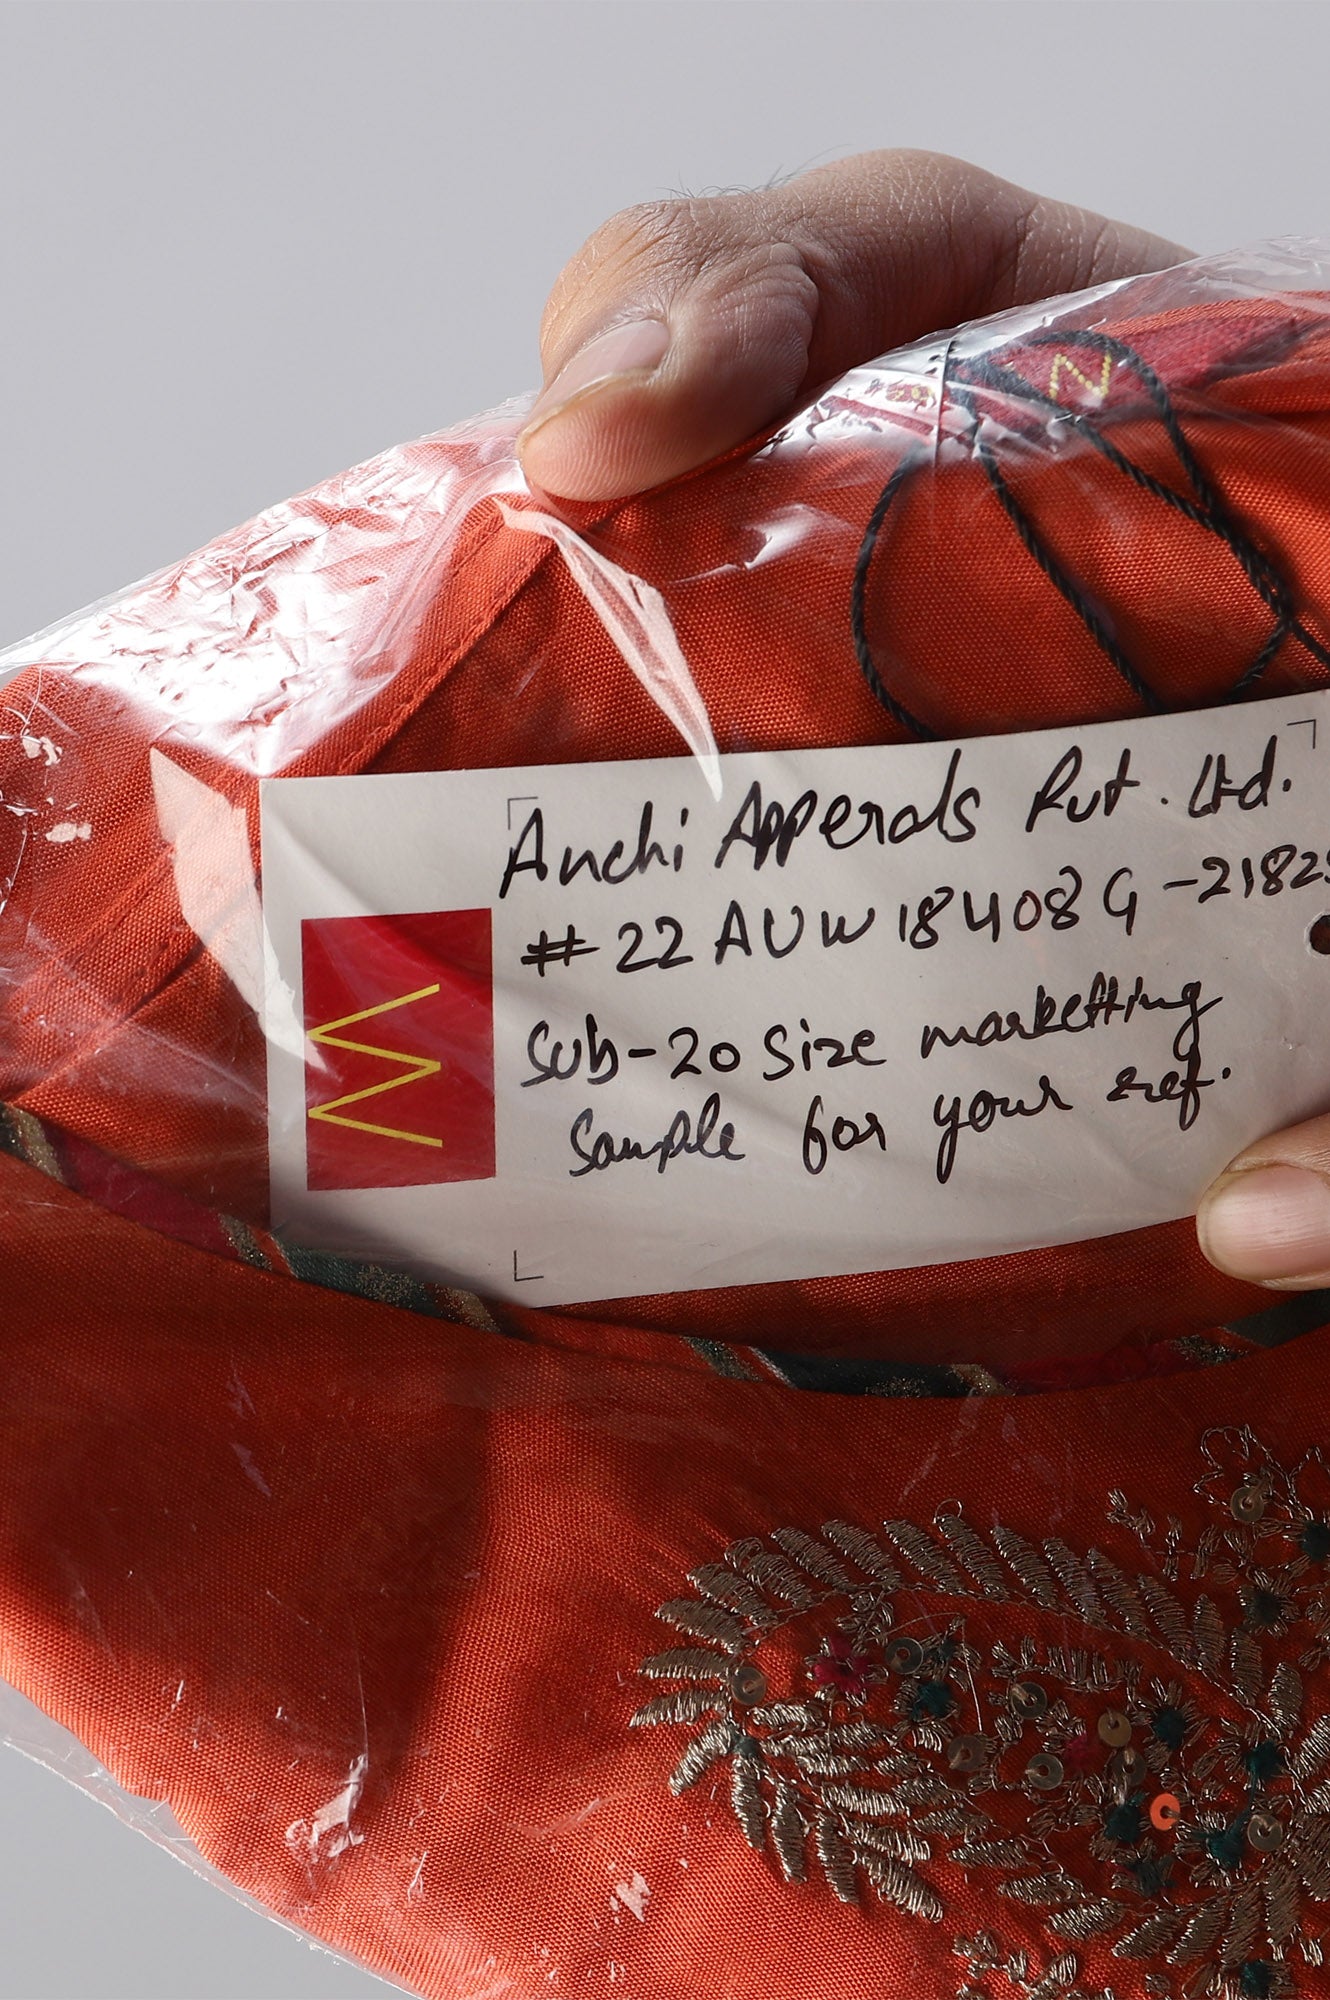 Anchi Apperals Pvt. Ltd.
# 22AUW18408G-21825
Sub-20 Size marketting
Sample for your ref.
W